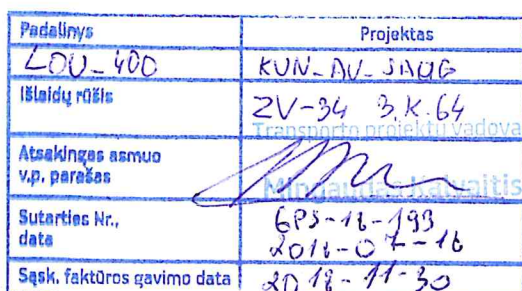 Padalinys Projektas
LOU-400 KUN-AV-SAUG
Išlaidų rūšis ZV-34 3.K.64
Transporto projektų vadova
Atsakingas asmuo
v.p. parašas
Mingaudas Kalvaitis
Sutarties Nr., 6PS-18-193
data 2018-07-16
Sąsk. faktūros gavimo data 2018-11-30